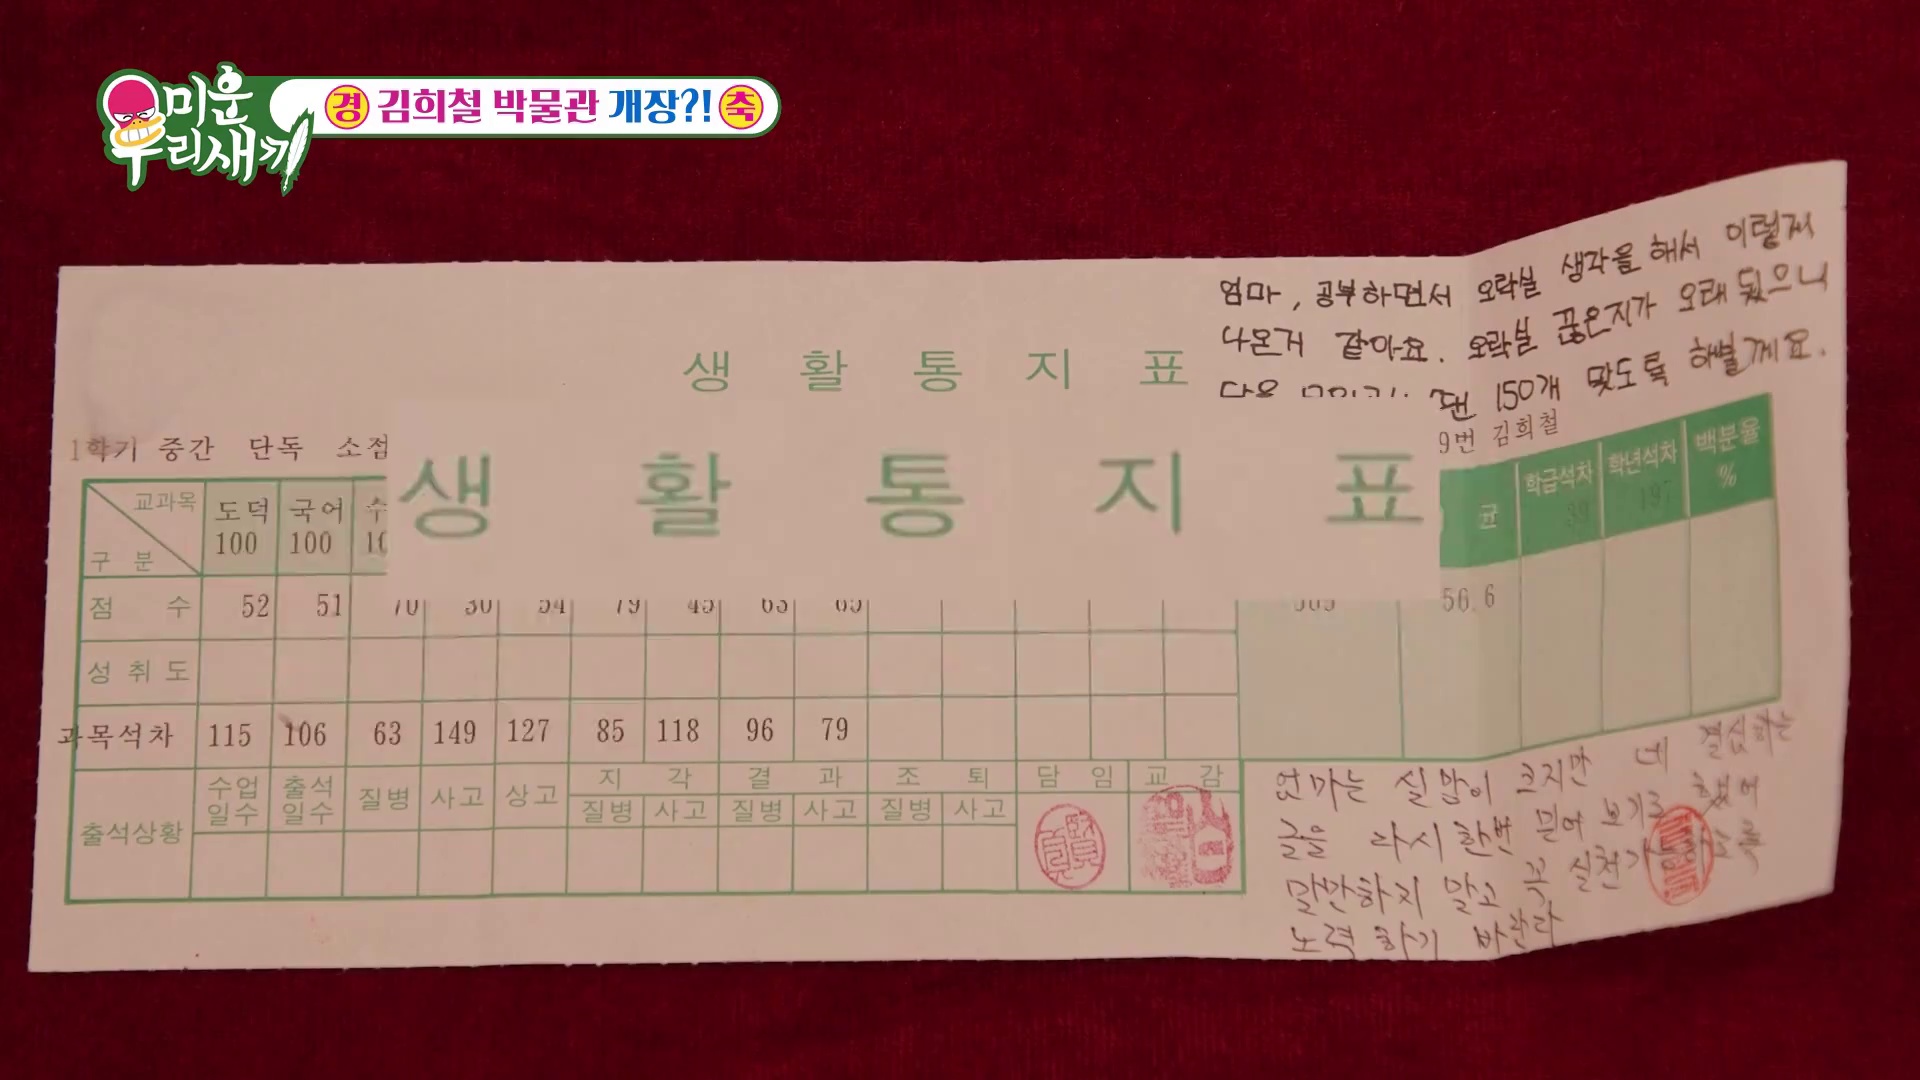 미운
우리새끼
경 김희철 박물관 개장?! 축
엄마, 공부하면서 오락실 생각을 해서 이렇게
나온거 같아요. 오락실 끊은지가 오래 됐으니
150개 맞도록 해볼게요.
생 활 통 지 표
1학기 중간 단독 소점
9번 김희철
생 활 통 지 표
교과목 도덕 국어 수 균 학급석차 학년석차 백분율
구 분 100 100 10 39 197 %
점 수 52 51 70 30 54 79 45 63 65 509 56.6
성 취 도
과목석차 115 106 63 149 127 85 118 96 79
출석상황 수업일수 출석일수 질병 사고 상고 지 각 결 과 조 퇴 담 임 교 감
질병 사고 질병 사고 질병 사고
엄마는 실망이 크지만 네 결심하는
글을 다시한번 믿어 보기로 했어
말만하지 말고 꼭 실천가능하도록
노력하기 바란다